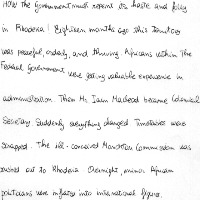 How the Government must repent its haste and folly
in Rhodesia! Eighteen months ago this territory
was peaceful, orderly, and thriving. Africans within the
Federal Government were getting valuable experience in
administration. Then Mr. Iain Macleod became Colonial
Secretary. Suddenly everything changed. Timetables was
scrapped. The ill-conceived Monckton Commission was
rushed out to Rhodesia. Overnight, minor African
politicians were inflated into international figures.